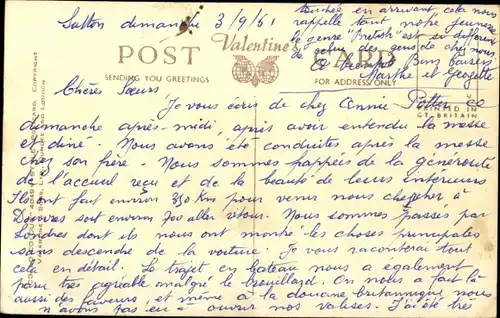 Sutton dimanche 3/9/61
Chères Sœurs
Je vous écris de chez Annie Potter ce
dimanche après-midi, après avoir entendu la messe
et dîné. Nous avons été conduites après la messe
chez son frère. Nous sommes frappées de la générosité
de l'accueil reçu et de la beauté de leurs intérieurs
Ils ont fait environ 350 Kms pour venous nous chercher à
Douvres soit environ 700 aller retour. Nous sommes passés par
Londres dont ils nous ont montré les choses principales
sans descendre de la voiture. Je vous raconterai tout
cela en détail. Le trajet en bateau nous a également
paru très agréable malgré le brouillard. On nous a fait là
aussi des faveurs, et même à la douane britannique nous
n'avons pas eu à ouvrir nos valises. J'ai été très
touchée en arrivant cela nous
rappelle tant notre jeunesse
le genre "british" est si différent
de celui des gens de chez nous
Bons baisers
Marthe et Georgette
POST CARD
Valentine's
SENDING YOU GREETINGS
FOR ADDRESS ONLY
PRINTED IN
GT. BRITAIN
COPYRIGHT